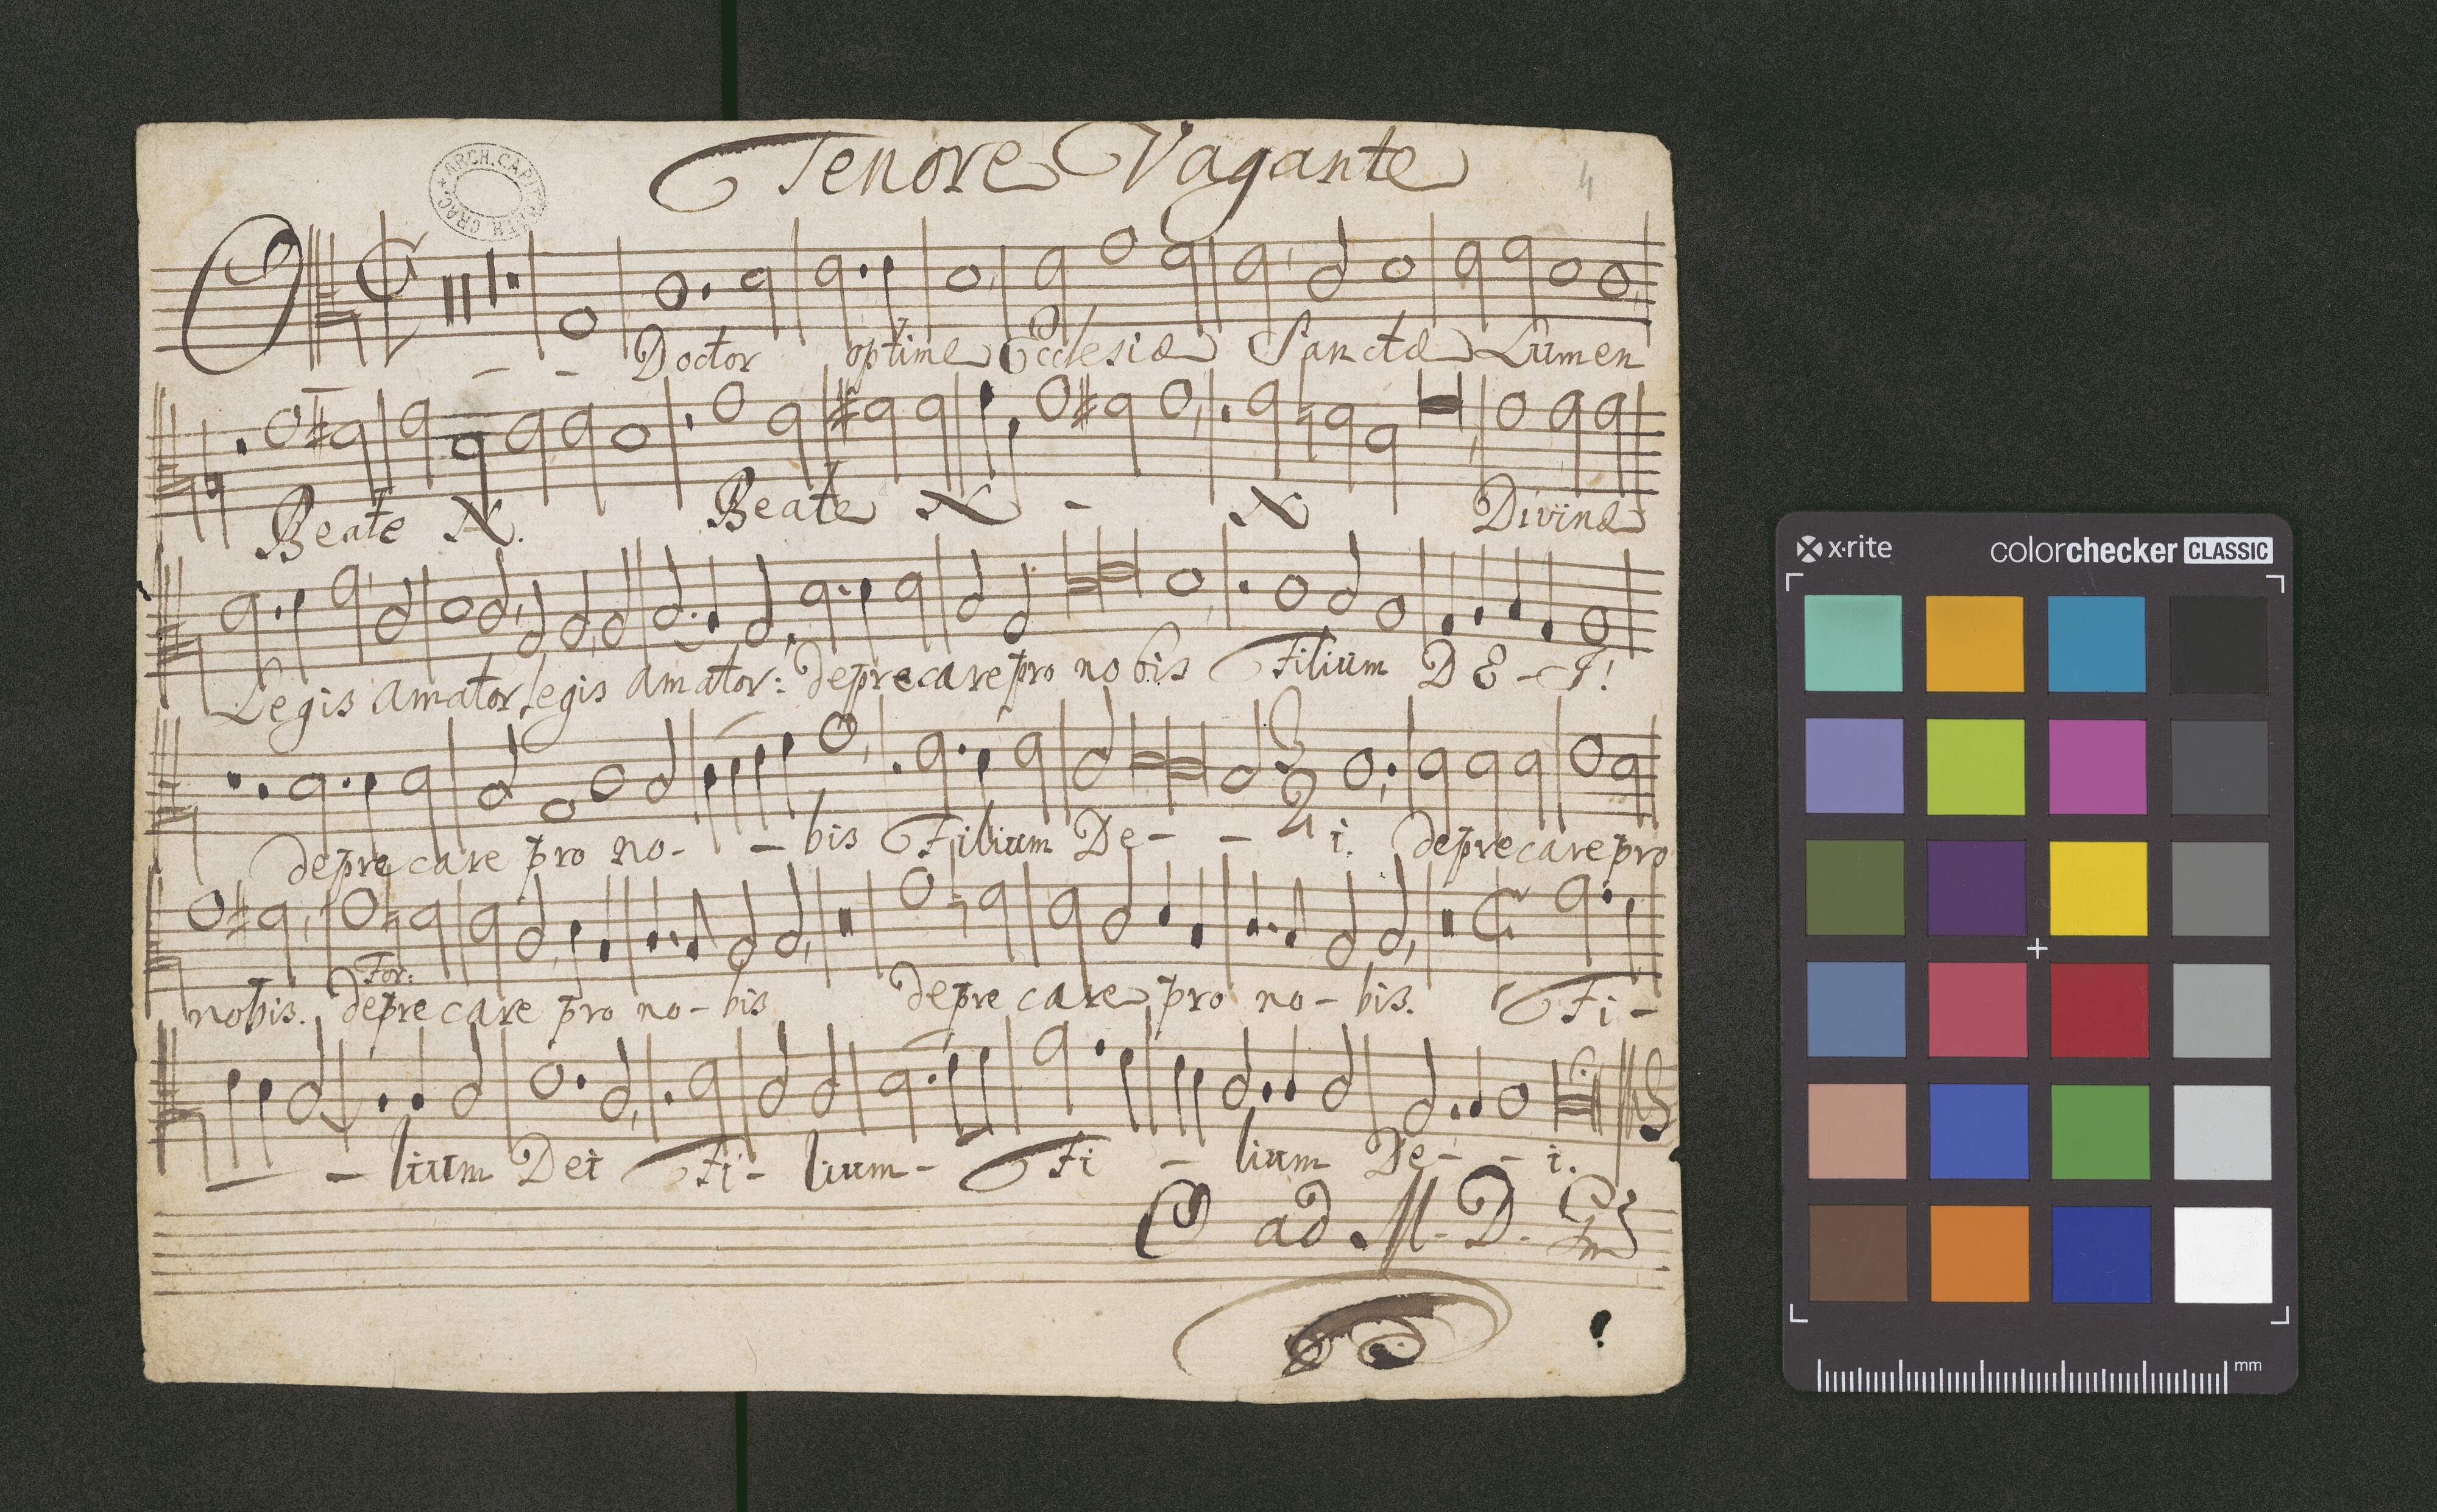 Tenore Vagante
4
ARCH. CAPIT.
O - - Doctor optime Ecclesiæ Sanctæ Lumen
Beate N. Beate N - N Divinæ
Legis amator, legis amator: deprecare pro nobis Filium DE-I!
deprecare pro no- - bis Filium De- - i. deprecare pro
3
2
nobis. deprecare pro no- bis deprecare pro no- bis. Fi-
For:
- - lium Dei Fi- lium- Fi - lium De- - i.
ad M. D.
x·rite colorchecker CLASSIC
mm